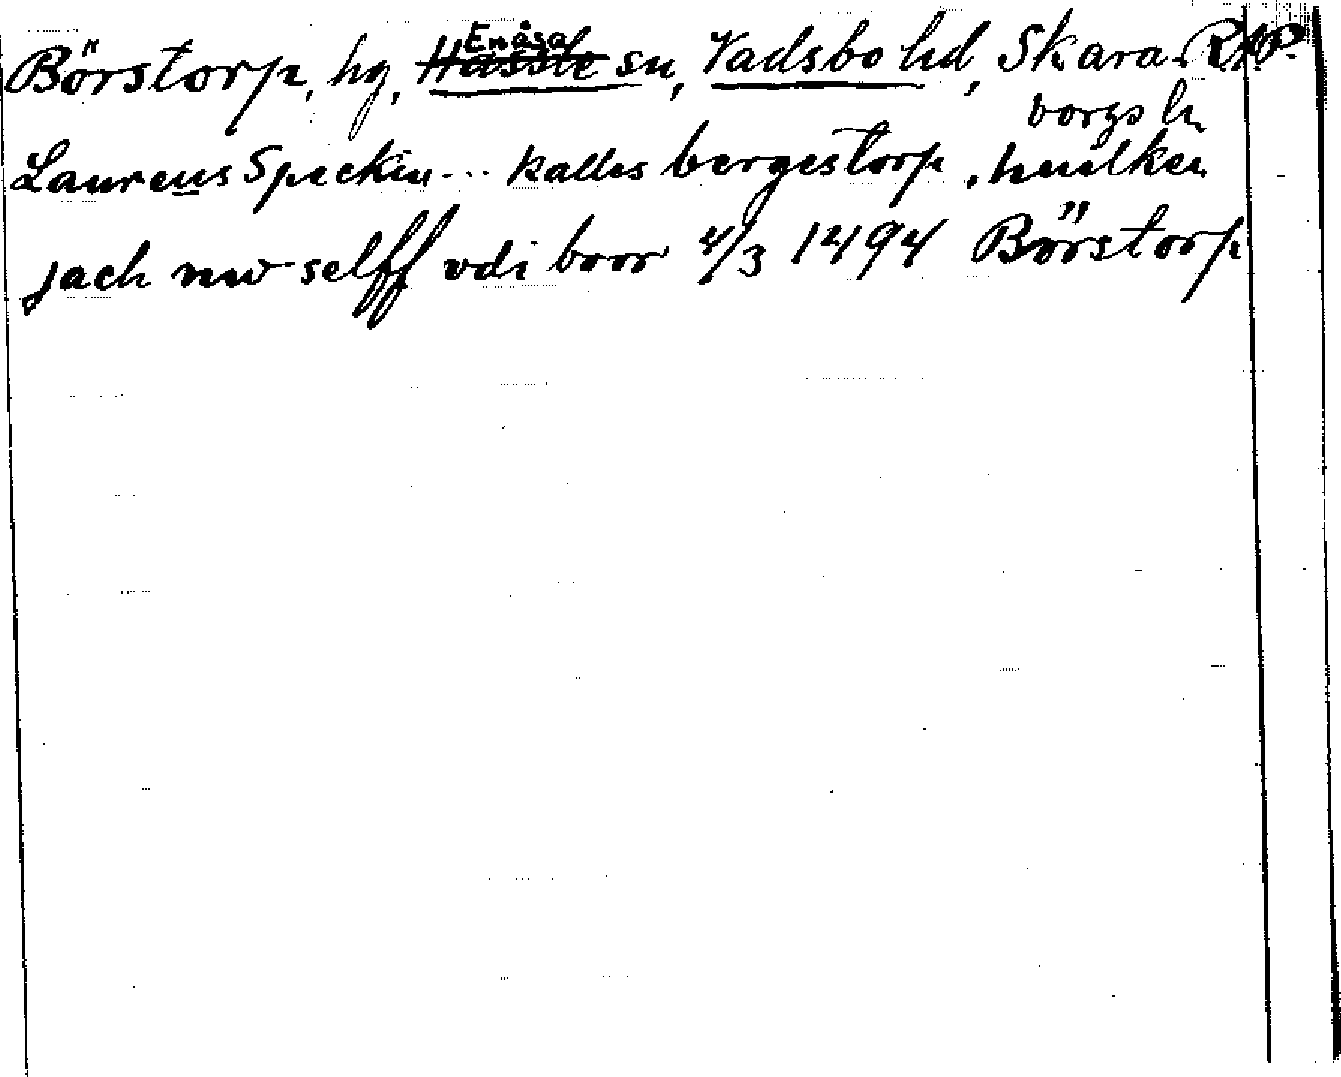 Börstorp, hg, Hassle Enåsa sn, Vadsbo hd, Skara RAP.
borgs ln
Laurens Speckin... kalles bergestorp, huilken
jach nw selff vdi boor 4/3 1494 Börstorp